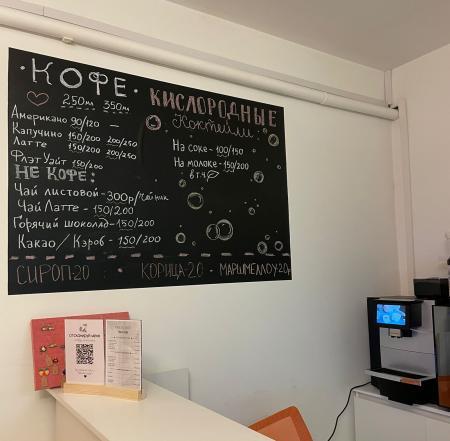 • КОФЕ •
250мл 350мл
Американо 90/120 —
Капучино 150/200 200/250
Латте 150/200 200/250
ФлэтУайт 150/200
НЕ КОФЕ:
Чай листовой - 300р/чайник
Чай Латте - 150/200
Горячий шоколад - 150/200
Какао/Кэроб - 150/200
КИСЛОРОДНЫЕ
Коктейли:
На соке - 100/150
На молоке - 150/200
в т.ч
СИРОП-20 • КОРИЦА-20 • МАРШМЕЛЛОУ 20р
ОТСКАНИРУЙ МЕНЯ